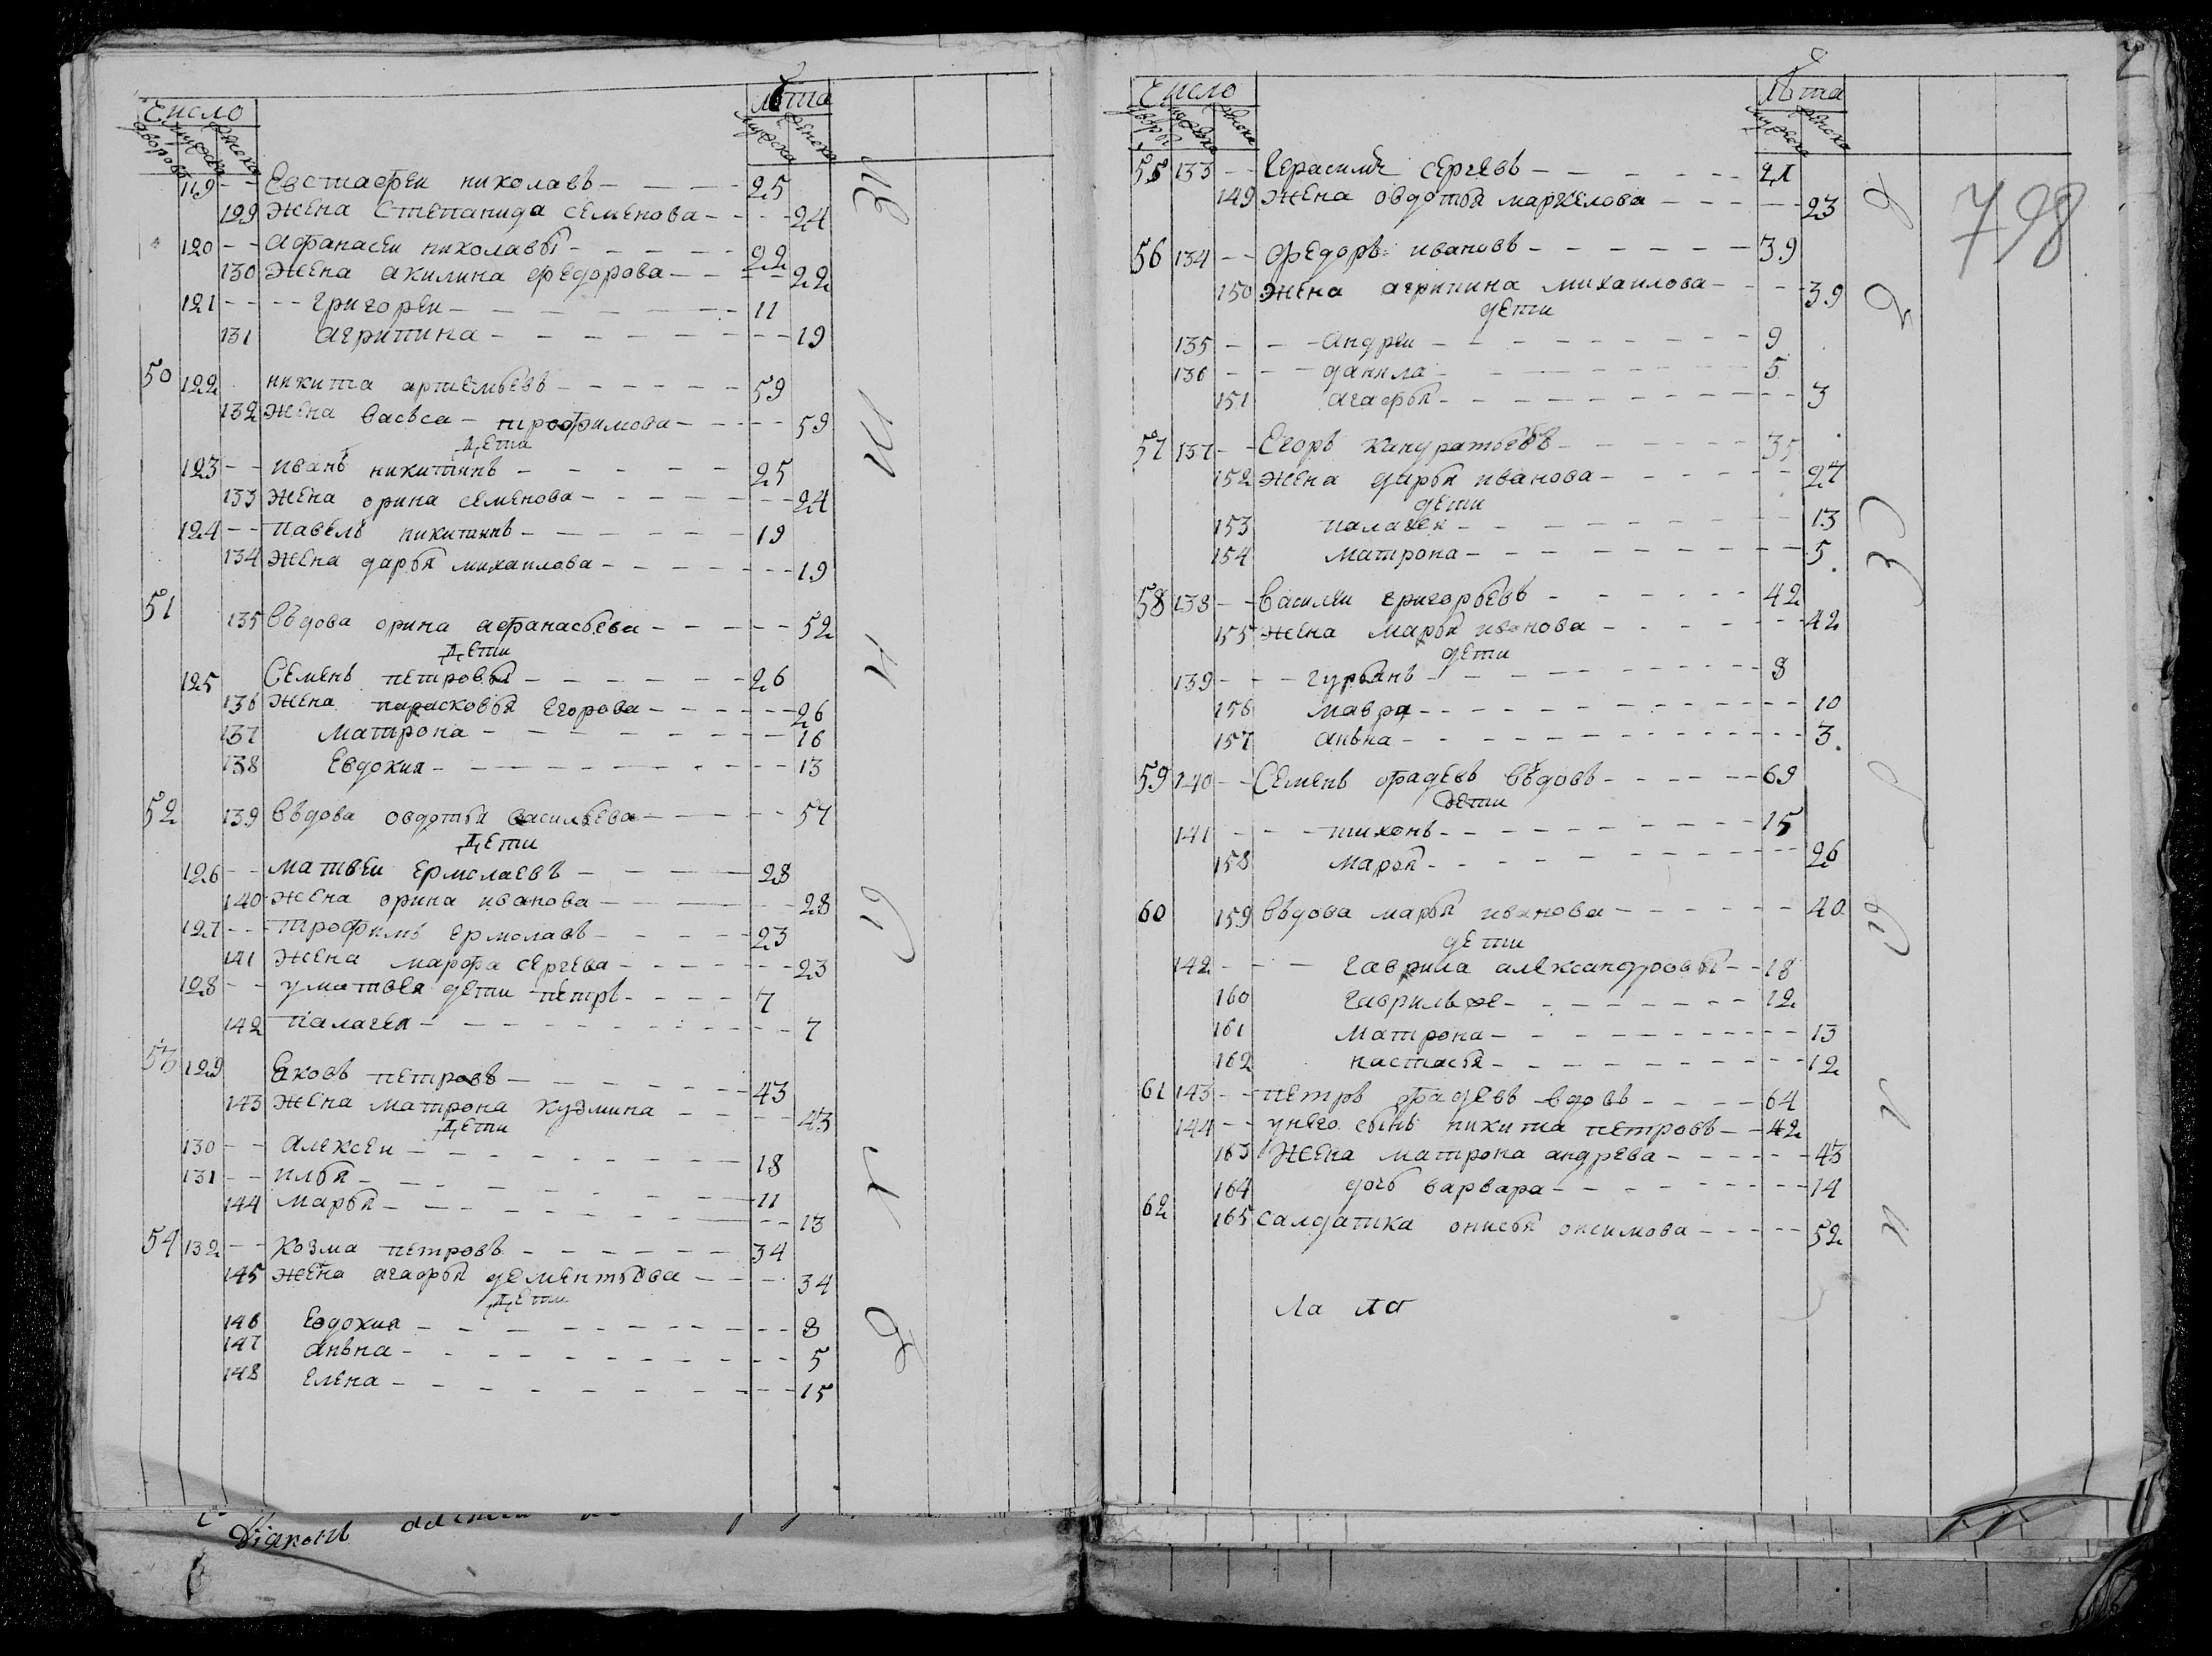 Число
Лѣта
дворовъ мужеска женска
мужеска женска
119 -- Евстафеи николаевъ - - - - 25
129 жена Степанида семенова - - - - 24
120 -- афанасеи николавы - - - - - 22
130 жена акилина федорова - - - - 22
121 -- -- григореи - - - - - - - 11
131 агрипина - - - - - - - - 19
50 122 никита артемьевъ - - - - - - 59
132 жена васьса - трофимова - - - - 59
дети
123 -- иванъ никитинъ - - - - - - 25
133 жена орина семенова - - - - - - 24
124 -- павелъ никитинъ - - - - - - 19
134 жена дарья михаилова - - - - - - 19
51 135 въдова орина афанасьева - - - - - 52
дети
125 Семенъ петровы - - - - - - 26
136 жена парасковья егорова - - - - - 26
137 матрона - - - - - - - - 16
138 Евдокия - - - - - - - - 13
52 139 въдова овдотья васильева - - - - - 57
дети
126 -- матвеи ермолаевъ - - - - 28
140 жена орина иванова - - - - 28
127 -- трофимъ ермолаевъ - - - - - 23
141 жена марфа сергева - - - - - - 23
128 -- у матвея дети петръ - - - - 7
142 палагея - - - - - - - - 7
53 129 Яковъ петровъ - - - - - - 43
143 жена матрона кузмина - - - - 43
дети
130 -- алексеи - - - - - - - - 18
131 -- илья - - - - - - - - 11
144 марья - - - - - - - - 13
54 132 -- козма петровъ - - - - - - 34
145 жена агафья дементьева - - - - 34
дети
146 Евдокия - - - - - - - - 8
147 аньна - - - - - - - - 5
148 елена - - - - - - - - 15
Число
Лѣта
мужеска женска
55 133 -- Герасимъ сергевъ - - - - - - 21
149 жена овдотья маркелова - - - - - 23
798
56 134 -- федоръ ивановъ - - - - - - 39
150 жена агрипина михаилова - - - - 39
дети
135 - - - андреи - - - - - - - - 9
136 - - - данила - - - - - - - 5
151 агафья - - - - - - - - 3
57 137 -- Егоръ кандратьевъ - - - - - - 35
152 жена дарья иванова - - - - - - 27
дети
153 палагея - - - - - - - - 13
154 матрона - - - - - - - - 5
58 138 -- василеи григорьевъ - - - - - - 42
155 жена марья иванова - - - - - - 42
дети
139 - - - гурьянъ - - - - - - - - 8
156 мавра - - - - - - - - 10
157 аньна - - - - - - - - 3
59 140 -- Семенъ фадевъ въдовъ - - - - - 69
дети
141 - - - тихонъ - - - - - - - - 15
158 марья - - - - - - - - 26
60 159 въдова марья иванова - - - - - - 40
дети
142 - - - гаврила александровы - - 18
160 гаврилъ же - - - - - - - 12
161 матрона - - - - - - - - 13
162 настасья - - - - - - - - 12
61 143 -- петръ фадевъ вдовъ - - - - 64
144 -- у него сынъ никита петровъ - - 42
163 жена матрона андрева - - - - - 43
164 дочь варвара - - - - - - - 14
62 165 салдатка онисья онсимова - - - - 52